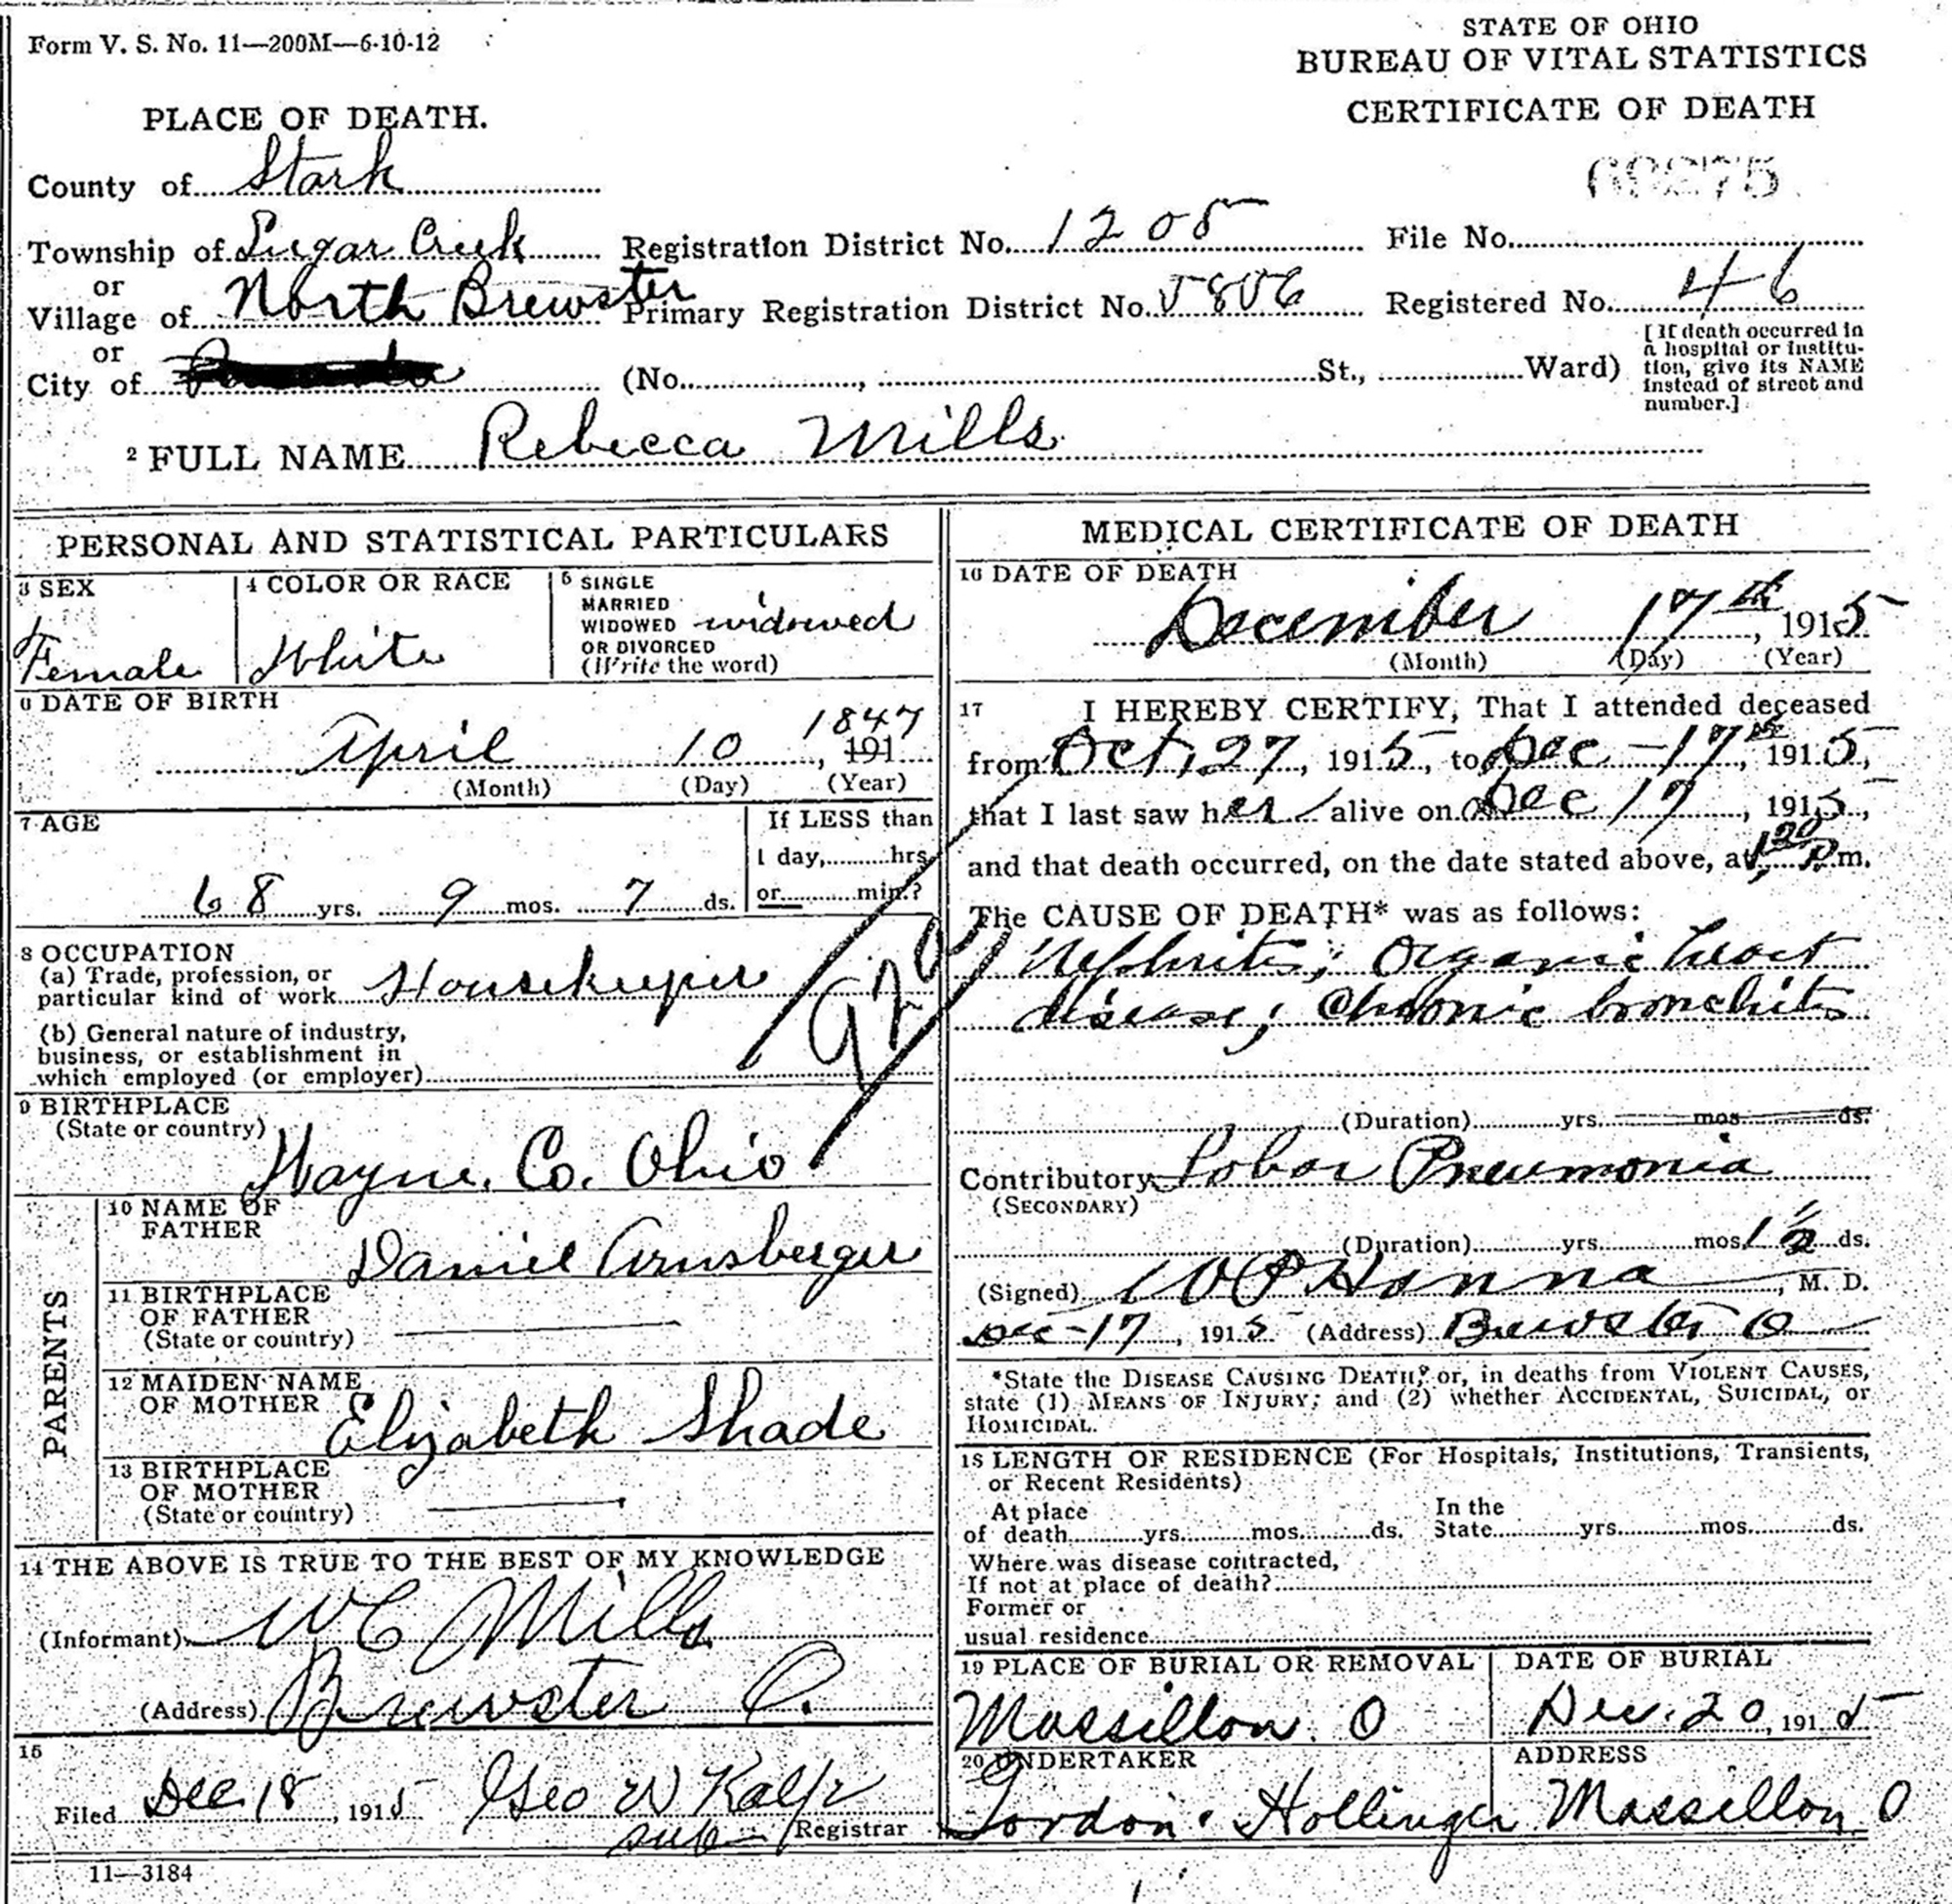 Form V. S. No. 11—200M—6-10-12
STATE OF OHIO
BUREAU OF VITAL STATISTICS
CERTIFICATE OF DEATH
PLACE OF DEATH.
County of Stark
Township of Sugar Creek Registration District No. 1205 File No.
or
Village of North Brewster Primary Registration District No. 5806 Registered No. 46
or
City of (No. , St., Ward)
[If death occurred in
a hospital or institu-
tion, give its NAME
instead of street and
number.]
2 FULL NAME Rebecca Mills
PERSONAL AND STATISTICAL PARTICULARS
3 SEX
Female
4 COLOR OR RACE
White
5 SINGLE
MARRIED
WIDOWED widowed
OR DIVORCED
(Write the word)
6 DATE OF BIRTH
April 10, 1847
191
(Month) (Day) (Year)
7 AGE
68 yrs. 9 mos. 7 ds.
If LESS than
1 day, hrs.
or min.?
8 OCCUPATION
(a) Trade, profession, or
particular kind of work Housekeeper
(b) General nature of industry,
business, or establishment in
which employed (or employer)
9 BIRTHPLACE
(State or country)
Wayne. Co. Ohio
PARENTS
10 NAME OF
FATHER
Daniel Arnsberger
11 BIRTHPLACE
OF FATHER
(State or country)
12 MAIDEN NAME
OF MOTHER
Elizabeth Shade
13 BIRTHPLACE
OF MOTHER
(State or country)
14 THE ABOVE IS TRUE TO THE BEST OF MY KNOWLEDGE
(Informant) WC Mills
(Address) Brewster O.
15
Filed Dec 18, 1915 Geo W
Registrar
11—3184
MEDICAL CERTIFICATE OF DEATH
16 DATE OF DEATH
December 17th, 1915
(Month) (Day) (Year)
17 I HEREBY CERTIFY, That I attended deceased
from Oct, 27, 1915, to Dec - 17th, 1915,
that I last saw her alive on Dec 17, 1915,
and that death occurred, on the date stated above, at 120 P.m.
The CAUSE OF DEATH* was as follows:
Nephritis; Organic heart
disease; Chronic bronchitis
(Duration) yrs. mos. ds.
Contributory Lobar Pneumonia
(SECONDARY)
(Duration) yrs. mos. 1 1/2 ds.
(Signed) Hanna, M. D.
Dec - 17, 1915 (Address) Brewster O
*State the DISEASE CAUSING DEATH, or, in deaths from VIOLENT CAUSES,
state (1) MEANS OF INJURY; and (2) whether ACCIDENTAL, SUICIDAL, or
HOMICIDAL.
18 LENGTH OF RESIDENCE (For Hospitals, Institutions, Transients,
or Recent Residents)
At place
of death yrs. mos. ds.
In the
State yrs. mos. ds.
Where was disease contracted,
If not at place of death?
Former or
usual residence
19 PLACE OF BURIAL OR REMOVAL
Massillon. O
DATE OF BURIAL
Dec. 20, 1915
20 UNDERTAKER
Gordon. Hollinger
ADDRESS
Massillon O